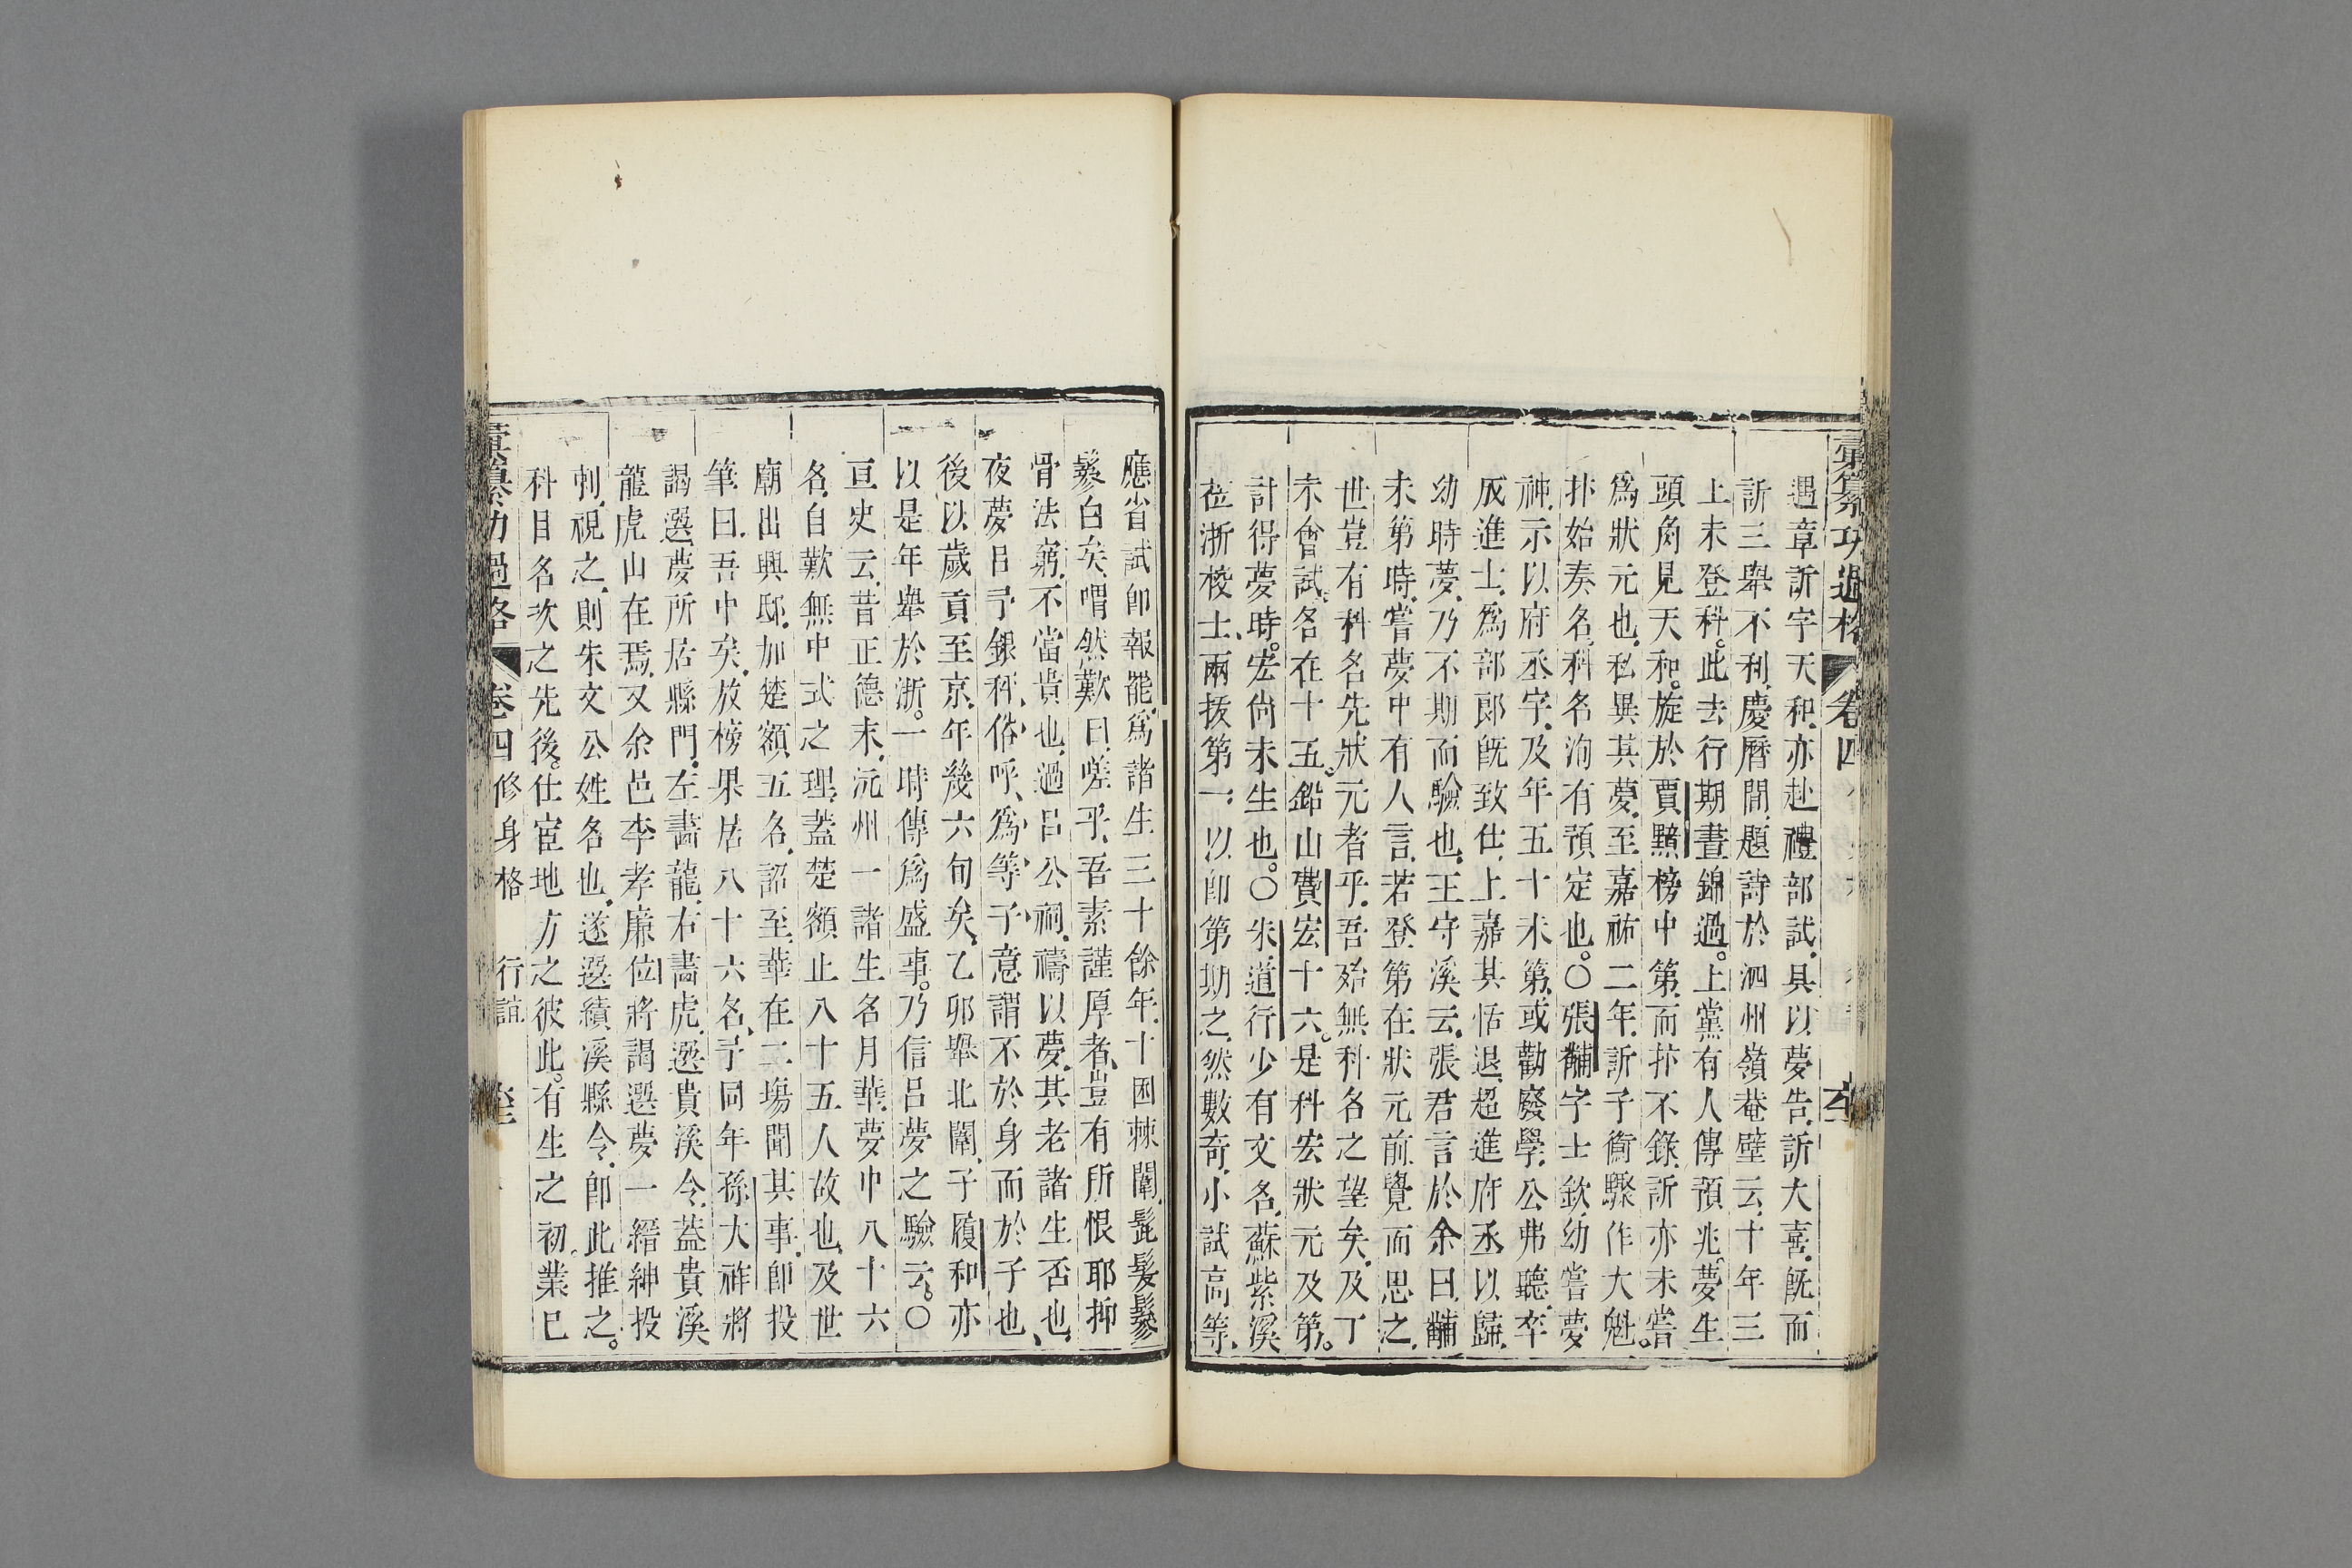 彙纂功過格 卷四
遇章訢字天和亦赴禮部試具以夢告訢大喜旣而
訢三舉不利慶曆間題詩於泗州嶺菴壁云十年三
上未登科此去行期晝錦過上黨有人傳預兆夢生
頭角見天和旋於賈黯榜中第而抃不錄訢亦未嘗
爲狀元也私異其夢至嘉祐二年訢子衡驟作大魁
抃始奏名科名洵有預定也○張黼字士欽幼嘗夢
神示以府丞字及年五十未第或勸廢學公弗聽卒
成進士爲部郎旣致仕上嘉其恬退超進府丞以歸
幼時夢乃不期而驗也王守溪云張君言於余曰黼
未第時嘗夢中有人言若登第在狀元前覺而思之
世豈有科名先狀元者乎吾殆無科名之望矣及丁
未會試名在十五鉛山費宏十六是科宏狀元及第
計得夢時宏尙未生也○朱道行少有文名蘇紫溪
蒞浙校士兩拔第一以卽第期之然數奇小試高等
應省試卽報罷爲諸生三十餘年十困棘闈髭髮鬖
鬖白矣喟然歎曰嗟乎吾素謹厚者豈有所恨耶抑
骨法窮不當貴也過呂公祠禱以夢其老諸生否也
夜夢曰予銀秤俗呼爲等子意謂不於身而於子也
後以歲貢至京年幾六旬矣乙卯舉北闈子履和亦
以是年舉於浙一時傳爲盛事乃信呂夢之驗云○
亘史云昔正德末沅州一諸生名月華夢中八十六
名自歎無中式之理蓋楚額止八十五人故也及世
廟出興邸加楚額五名詔至華在二場聞其事卽投
筆曰吾中矣放榜果居八十六名予同年孫大祚將
謁選夢所居縣門左畵龍右畵虎選貴溪令蓋貴溪
龍虎山在焉又余邑李孝廉位將謁選夢一縉紳投
刺視之則朱文公姓名也遂選績溪縣令卽此推之
科目名次之先後仕宦地方之彼此有生之初業已
彙纂功過格 卷四 修身格 行誼